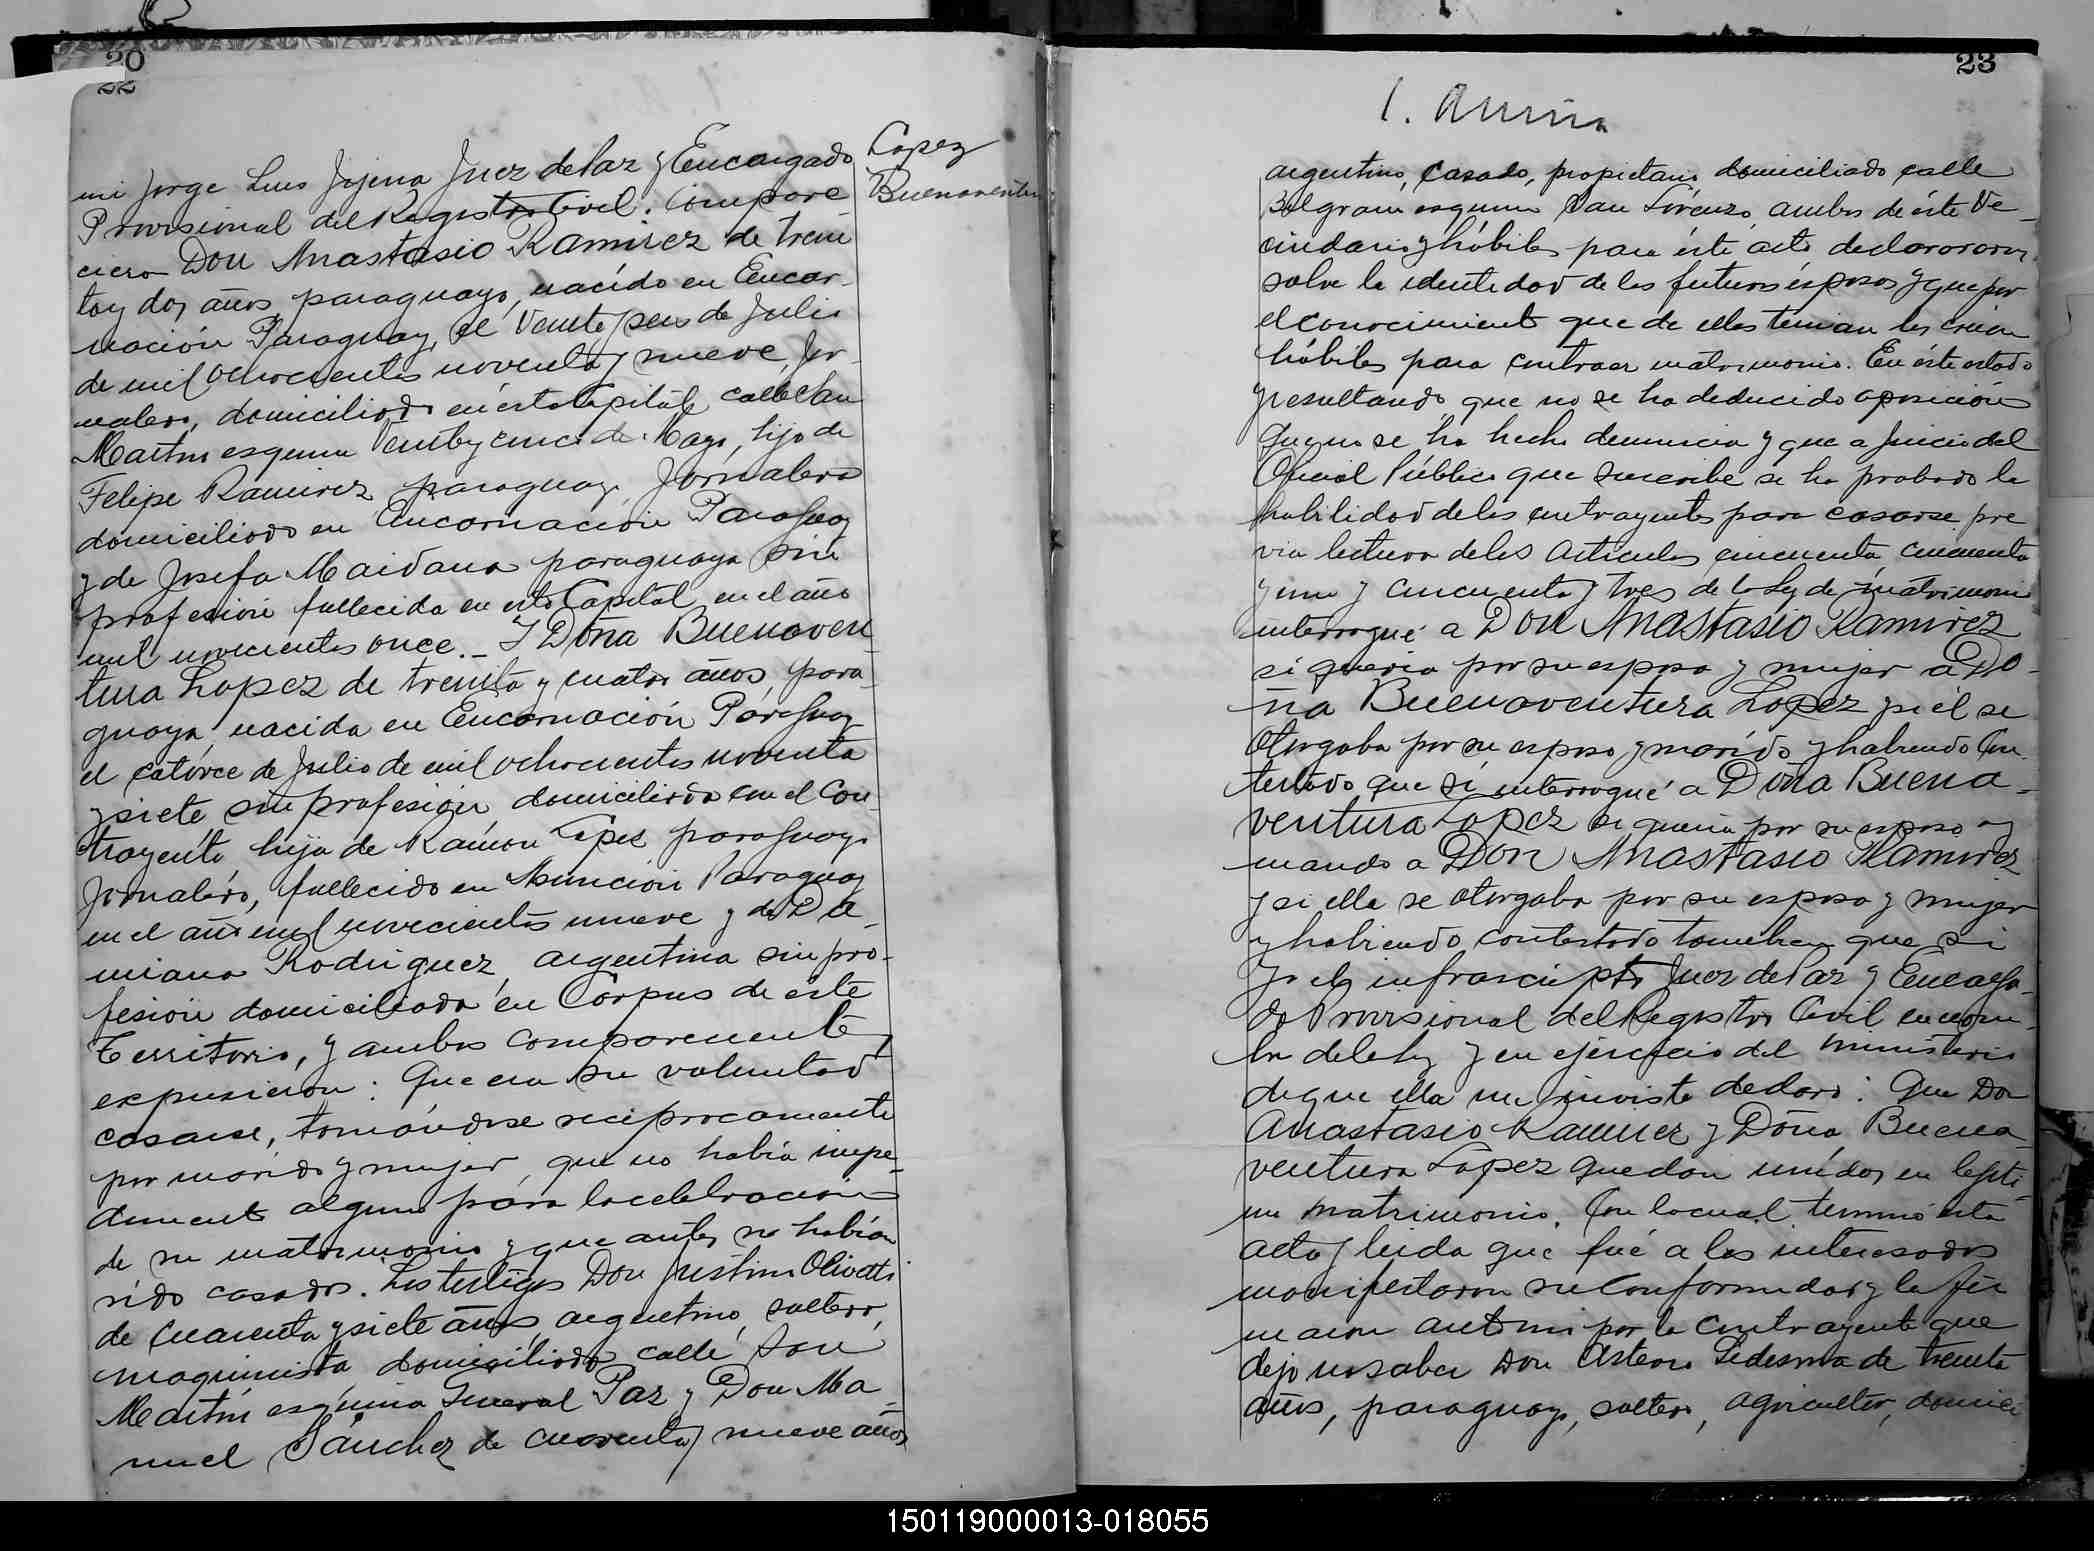 20
22
Lopez
Buenaventu
mi Jorge Luis Jojena Juez de Paz y Encargado
Provisional del Registro Civil: Compare
cieron Don Anastasio Ramirez de trein
tay dos años, paraguayo, nacido en Encar-
nación Paraguay, el Veinte de Julio
de mil ochocientos noventa y nueve, Jor-
nalero, domiciliado en ésta Capital, calle San
Martin esquina Veinty cinco de Mayo, hijo de
Felipe Ramirez paraguayo, Jornalero
domiciliado en Encarnación Paraguay
y de Josefa Maidana paraguaya sin
profesion fallecida en esta Capital en el año
mil novecientos once._ Y Doña Buenaven
tura Lopez de treinta y cuatro años, para-
guaya, nacida en Encarnación Paraguay
el catórce de Julio de mil ochocientos noventa
y siete sin profesión, domiciliada con el Con-
trayente hija de Ramón Lopez paraguayo
Jornaléro, fallecido en Asunción Paraguay
en el año mil novecientos nueve y de Da-
miana Rodriguez, argentina sin pro-
fesion domiciliada en Corpus de éste
Territorio, y ambos comparecientes
expusieron: Que era su voluntad
casarse, tomándose reciprocamente
por marido y mujer, que no había impe-
dimento alguno para la celebracion
de su matrimonio y que antes no habian
sido casados. Los testigos Don Justino Olivetti
de cuarenta y siete años, argentino, soltero,
maquinista domiciliado calle San
Martin esquina General Paz y Don Ma-
nuel Sánchez de cuarenta y nueve años
23
argentino, casado, propietario domiciliado calle
Belgrano esquina San Lorenzo ambos de éste Ve-
cindario y hábiles para éste acto, declararon
sobre la identidad de los futuros ésposos y que por
el conocimiento que de ellos tenian los creian
hábiles para contraer matrimonio. En éste estado
y resultando que no se ha deducido oposición
que no se ha hecho denuncia y que a juicio del
Oficial Público que suscribe se ha probado la
habilidad de los contrayentes para casarse, pre
via lectura de los Articulos cincuenta, cincuenta
y uno y cincuenta y tres de la Ley de matrimonio
interrogué a Don Anastasio Ramirez
si queria por su esposa y mujer a Do-
ña Buenaventura Lopez y si él se
otorgaba por su esposo y marido y habiendo con
testado que sí interrogué a Doña Buena-
ventura Lopez si queria por su esposo y
marido a Don Anastasio Ramirez
y si ella se otorgaba por su esposa y mujer
y habiendo contestado tambien que si
Yo el infrascripto Juez de Paz y Encarga-
do Provisional del Registro Civil en nom-
bre de la ley y en ejercicio del ministerio
de que ella me inviste declaro: Que Don
Anastasio Ramirez y Doña Buena
ventura Lopez quedan unidos en legiti-
mo matrimonio. Con lo cual terminó esta
acta y leida que fué a los interesados
manifestaron su conformidad y la fir
maron por la contrayente que
dijo no saber Don Asterio Ledesma de treinta
años, paraguayo, soltero, agricultor, domici
150119000013-018055